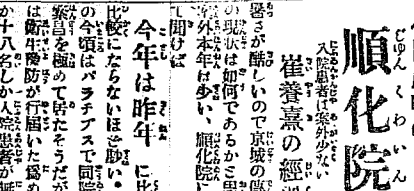 順化院
入院患者は案外少ない
崔養熏の經
暑さが酷しいので京城の
の現状は如何であるかと思
外本年は少い、順化院に
て聞けば
今年は昨年に比
比較にならないほど尠い。
の今頃はパラチブスで同院
繁昌を極めて居たそうだが
は衛生豫防が行届いた爲め
か十八名しか入院患者が無